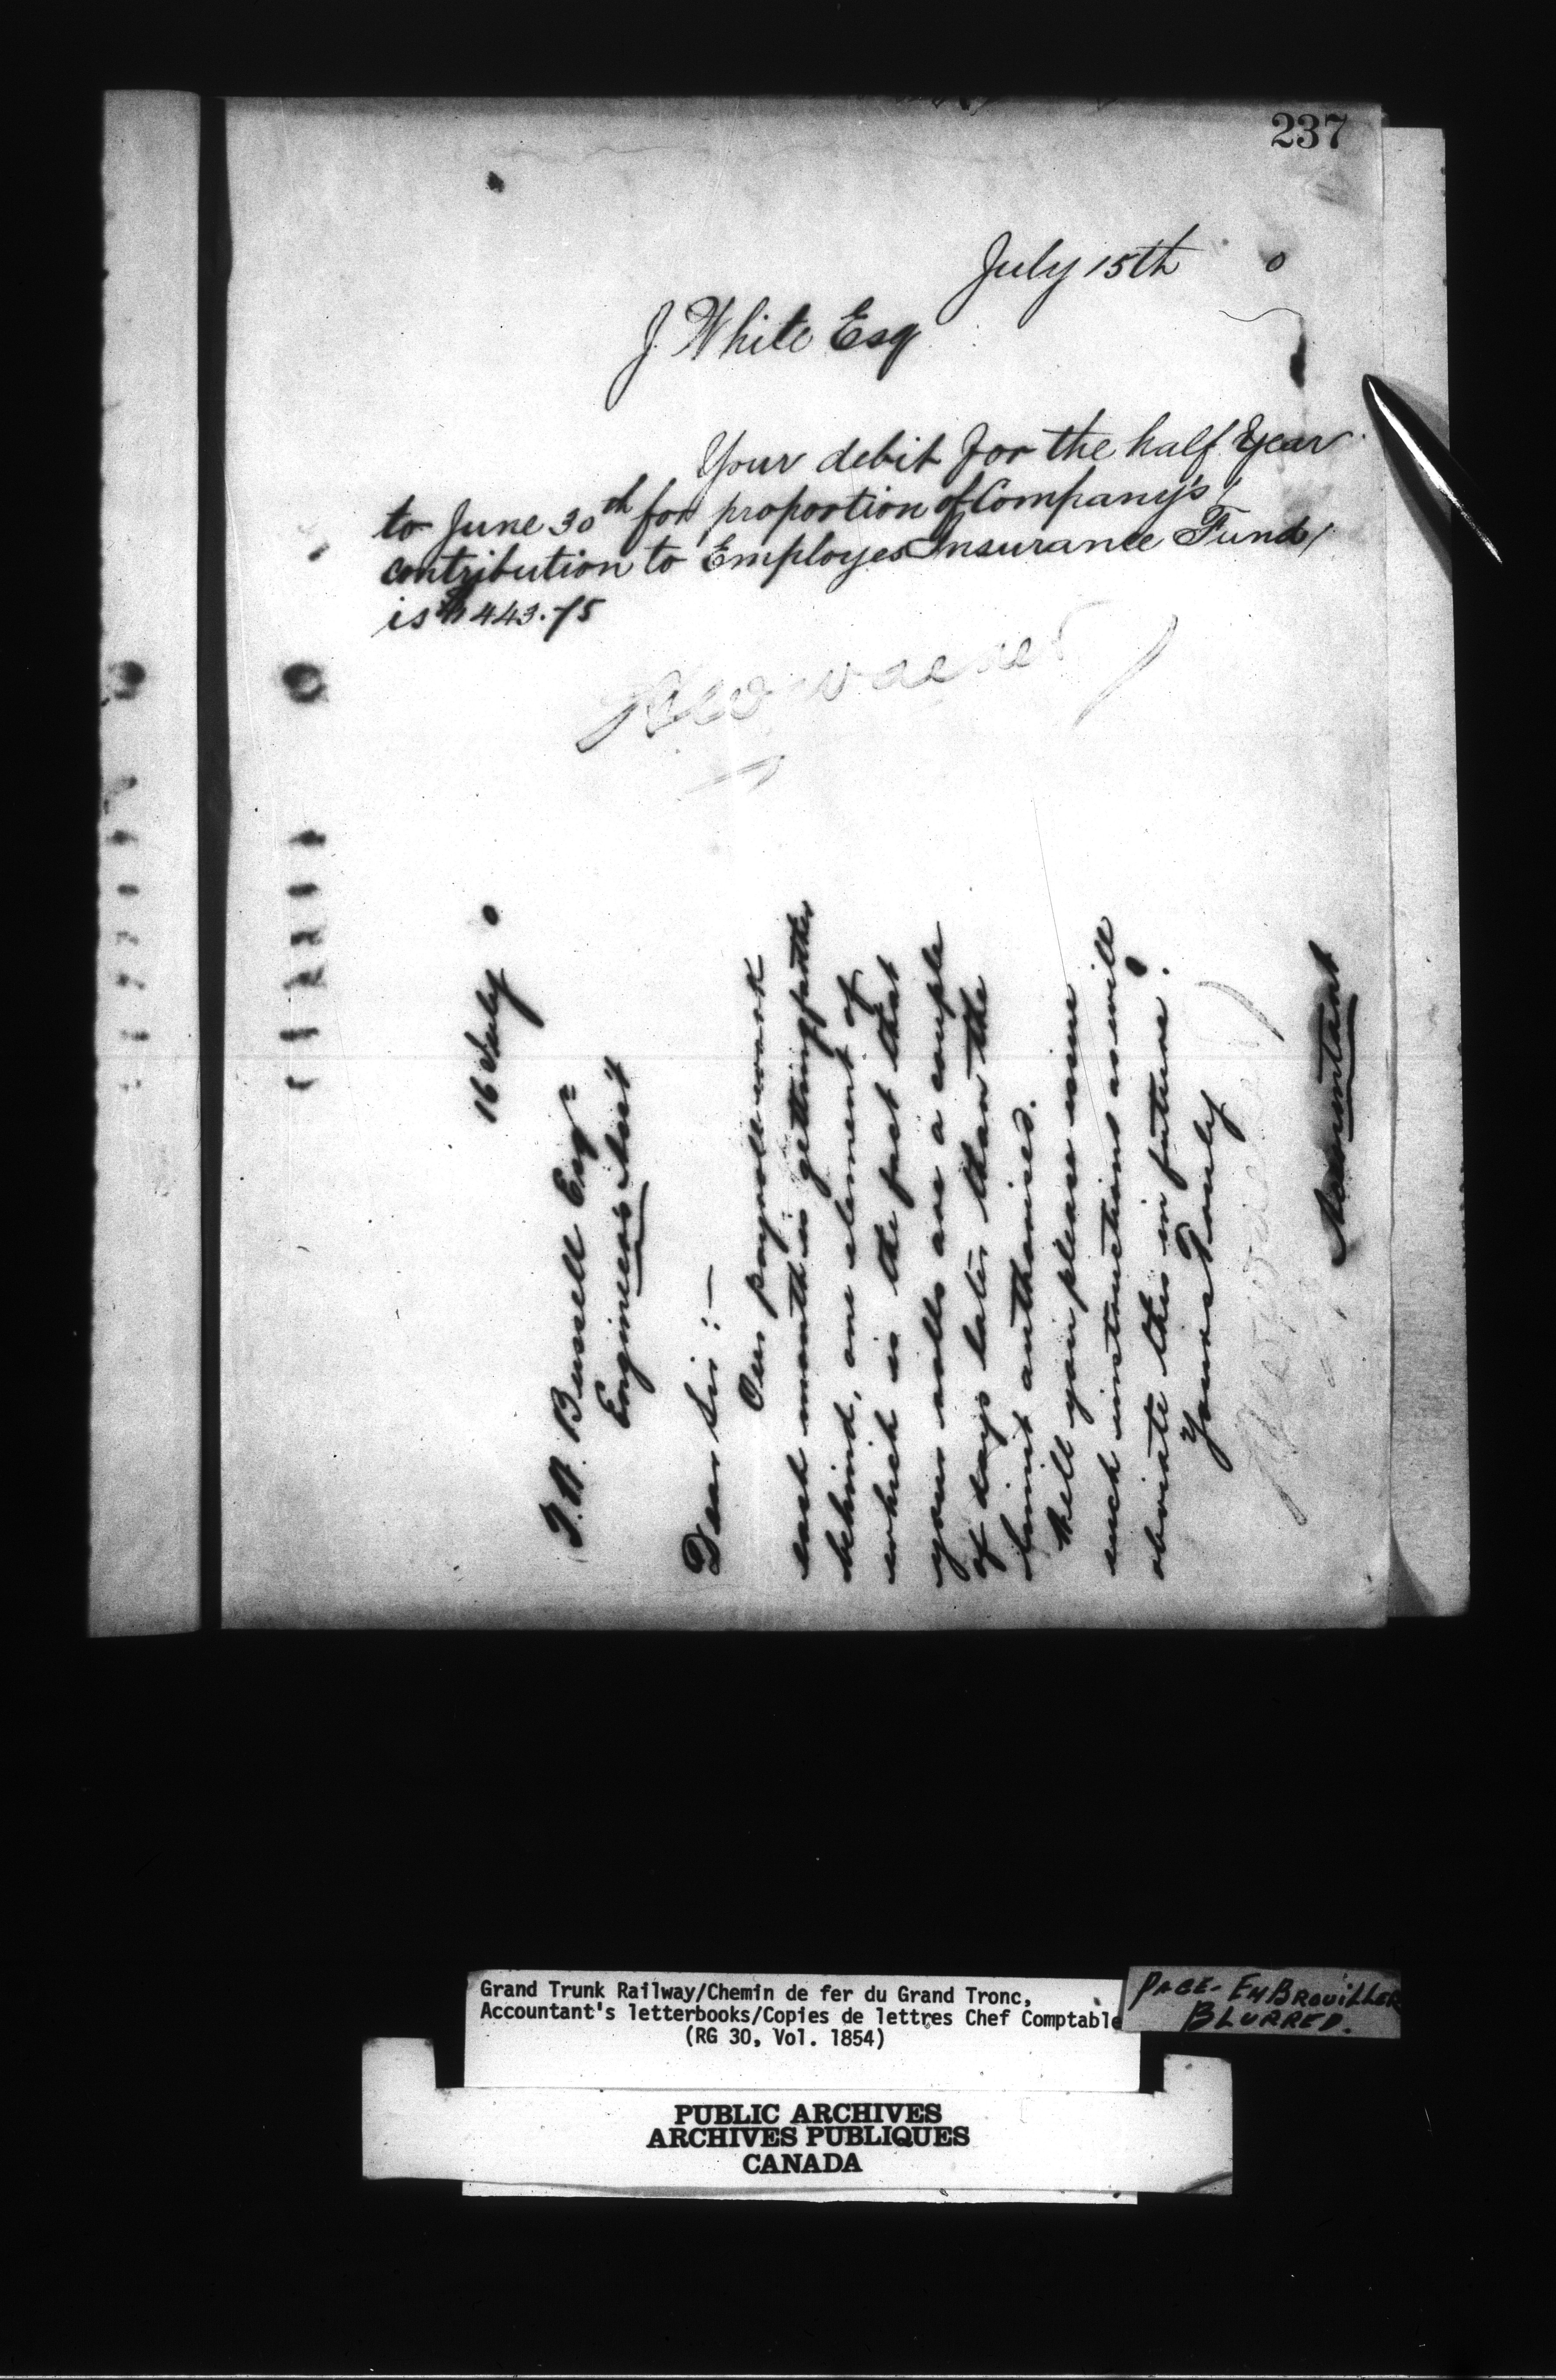 237
July 15th 0
J. White Esq
Your debit for the half Year
to June 30th for proportion of Company's
contribution to Employes Insurance Fund
is $443.75
16 July 0
Bussell Esqre
Engineer's Ass't
Dear Sir :—
Our payroll work
each month is getting further
behind, one element of
which is the fact that
your rolls are a couple
of days later than the
limit authorised.
Will you please issue
such instructions as will
obviate this in future.
Yours Truly
Accountant
Grand Trunk Railway/Chemin de fer du Grand Tronc,
Accountant's letterbooks/Copies de lettres Chef Comptable
(RG 30, Vol. 1854)
PAGE- EMBROUILLER
BLURRED.
PUBLIC ARCHIVES
ARCHIVES PUBLIQUES
CANADA